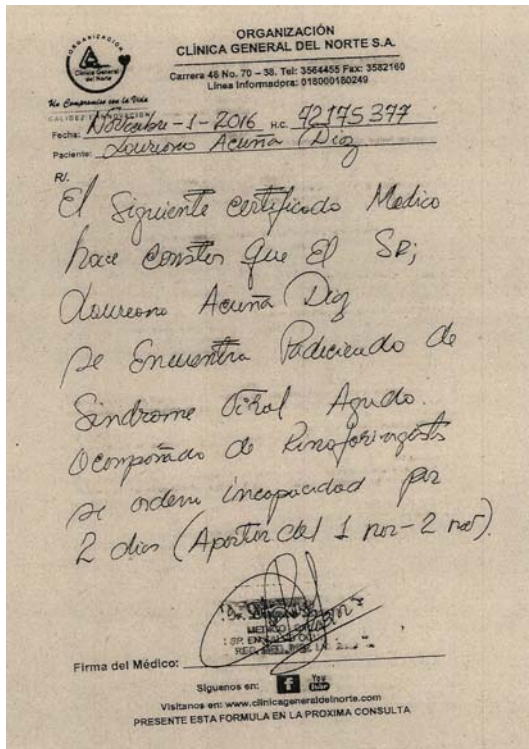 ORGANIZACIÓN
CLÍNICA GENERAL DEL NORTE S.A.
Carrera 46 No. 70 – 38. Tel: 3564455 Fax: 3582160
Línea Informadora: 018000180249
ORGANIZACIÓN
Clínica General
del Norte
Un Compromiso con la Vida
CALIDEZ E INNOVACIÓN
Fecha: Noviembre-1-2016 H.C. 92175377
Paciente: Laureano Acuña Diaz
R/.
El Siguiente Certificado Medico
hace Constar Que El SR;
Laureano Acuña Diaz
se Encuentra Padeciendo de
Sindrome Viral Agudo.
Acompañado de Rinofaringitis
se ordena incapacidad por
2 dias (Apartir del 1 nov-2 nov).
MEDICO
REG. MED.
Firma del Médico:
Siguenos en: f You Tube
Visítanos en: www.clinicageneraldelnorte.com
PRESENTE ESTA FORMULA EN LA PROXIMA CONSULTA